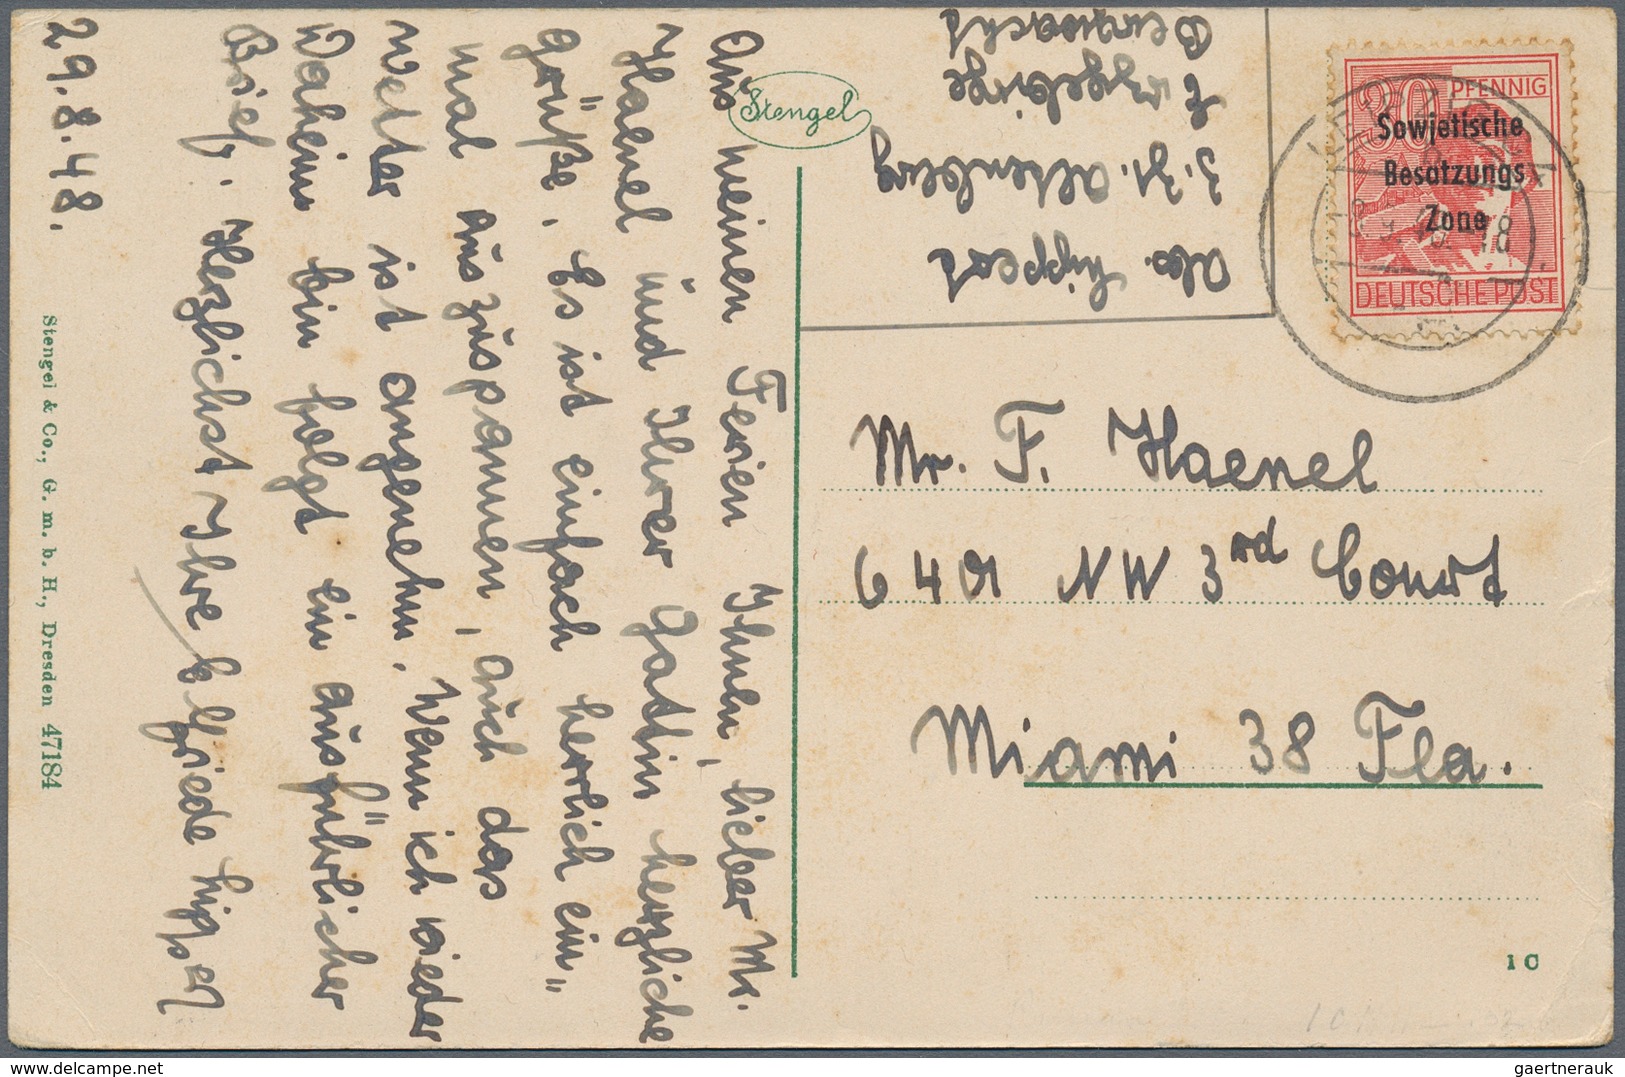 29.8.48.
Aus meinen Ferien Ihnen, lieber Mr.
Haenel und Ihrer Gattin herzliche
Grüße. Es ist einfach herrlich ein-
mal auszuspannen, auch das
Wetter ist angenehm. Wenn ich wieder
Daheim bin folgt ein ausführlicher
Brief. Herzlichst Ihre Elfriede Lippert
Stengel & Co., G. m. b. H., Dresden 47184
Stengel
Abs. Lippert
z. Zt. Altenberg
Erzgebirge
30 PFENNIG
Sowjetische
Besatzungs
Zone
DEUTSCHE POST
18
Mr. F. Haenel
6401 NW 3rd Court
Miami 38 Fla.
1 C
gaertnerauk